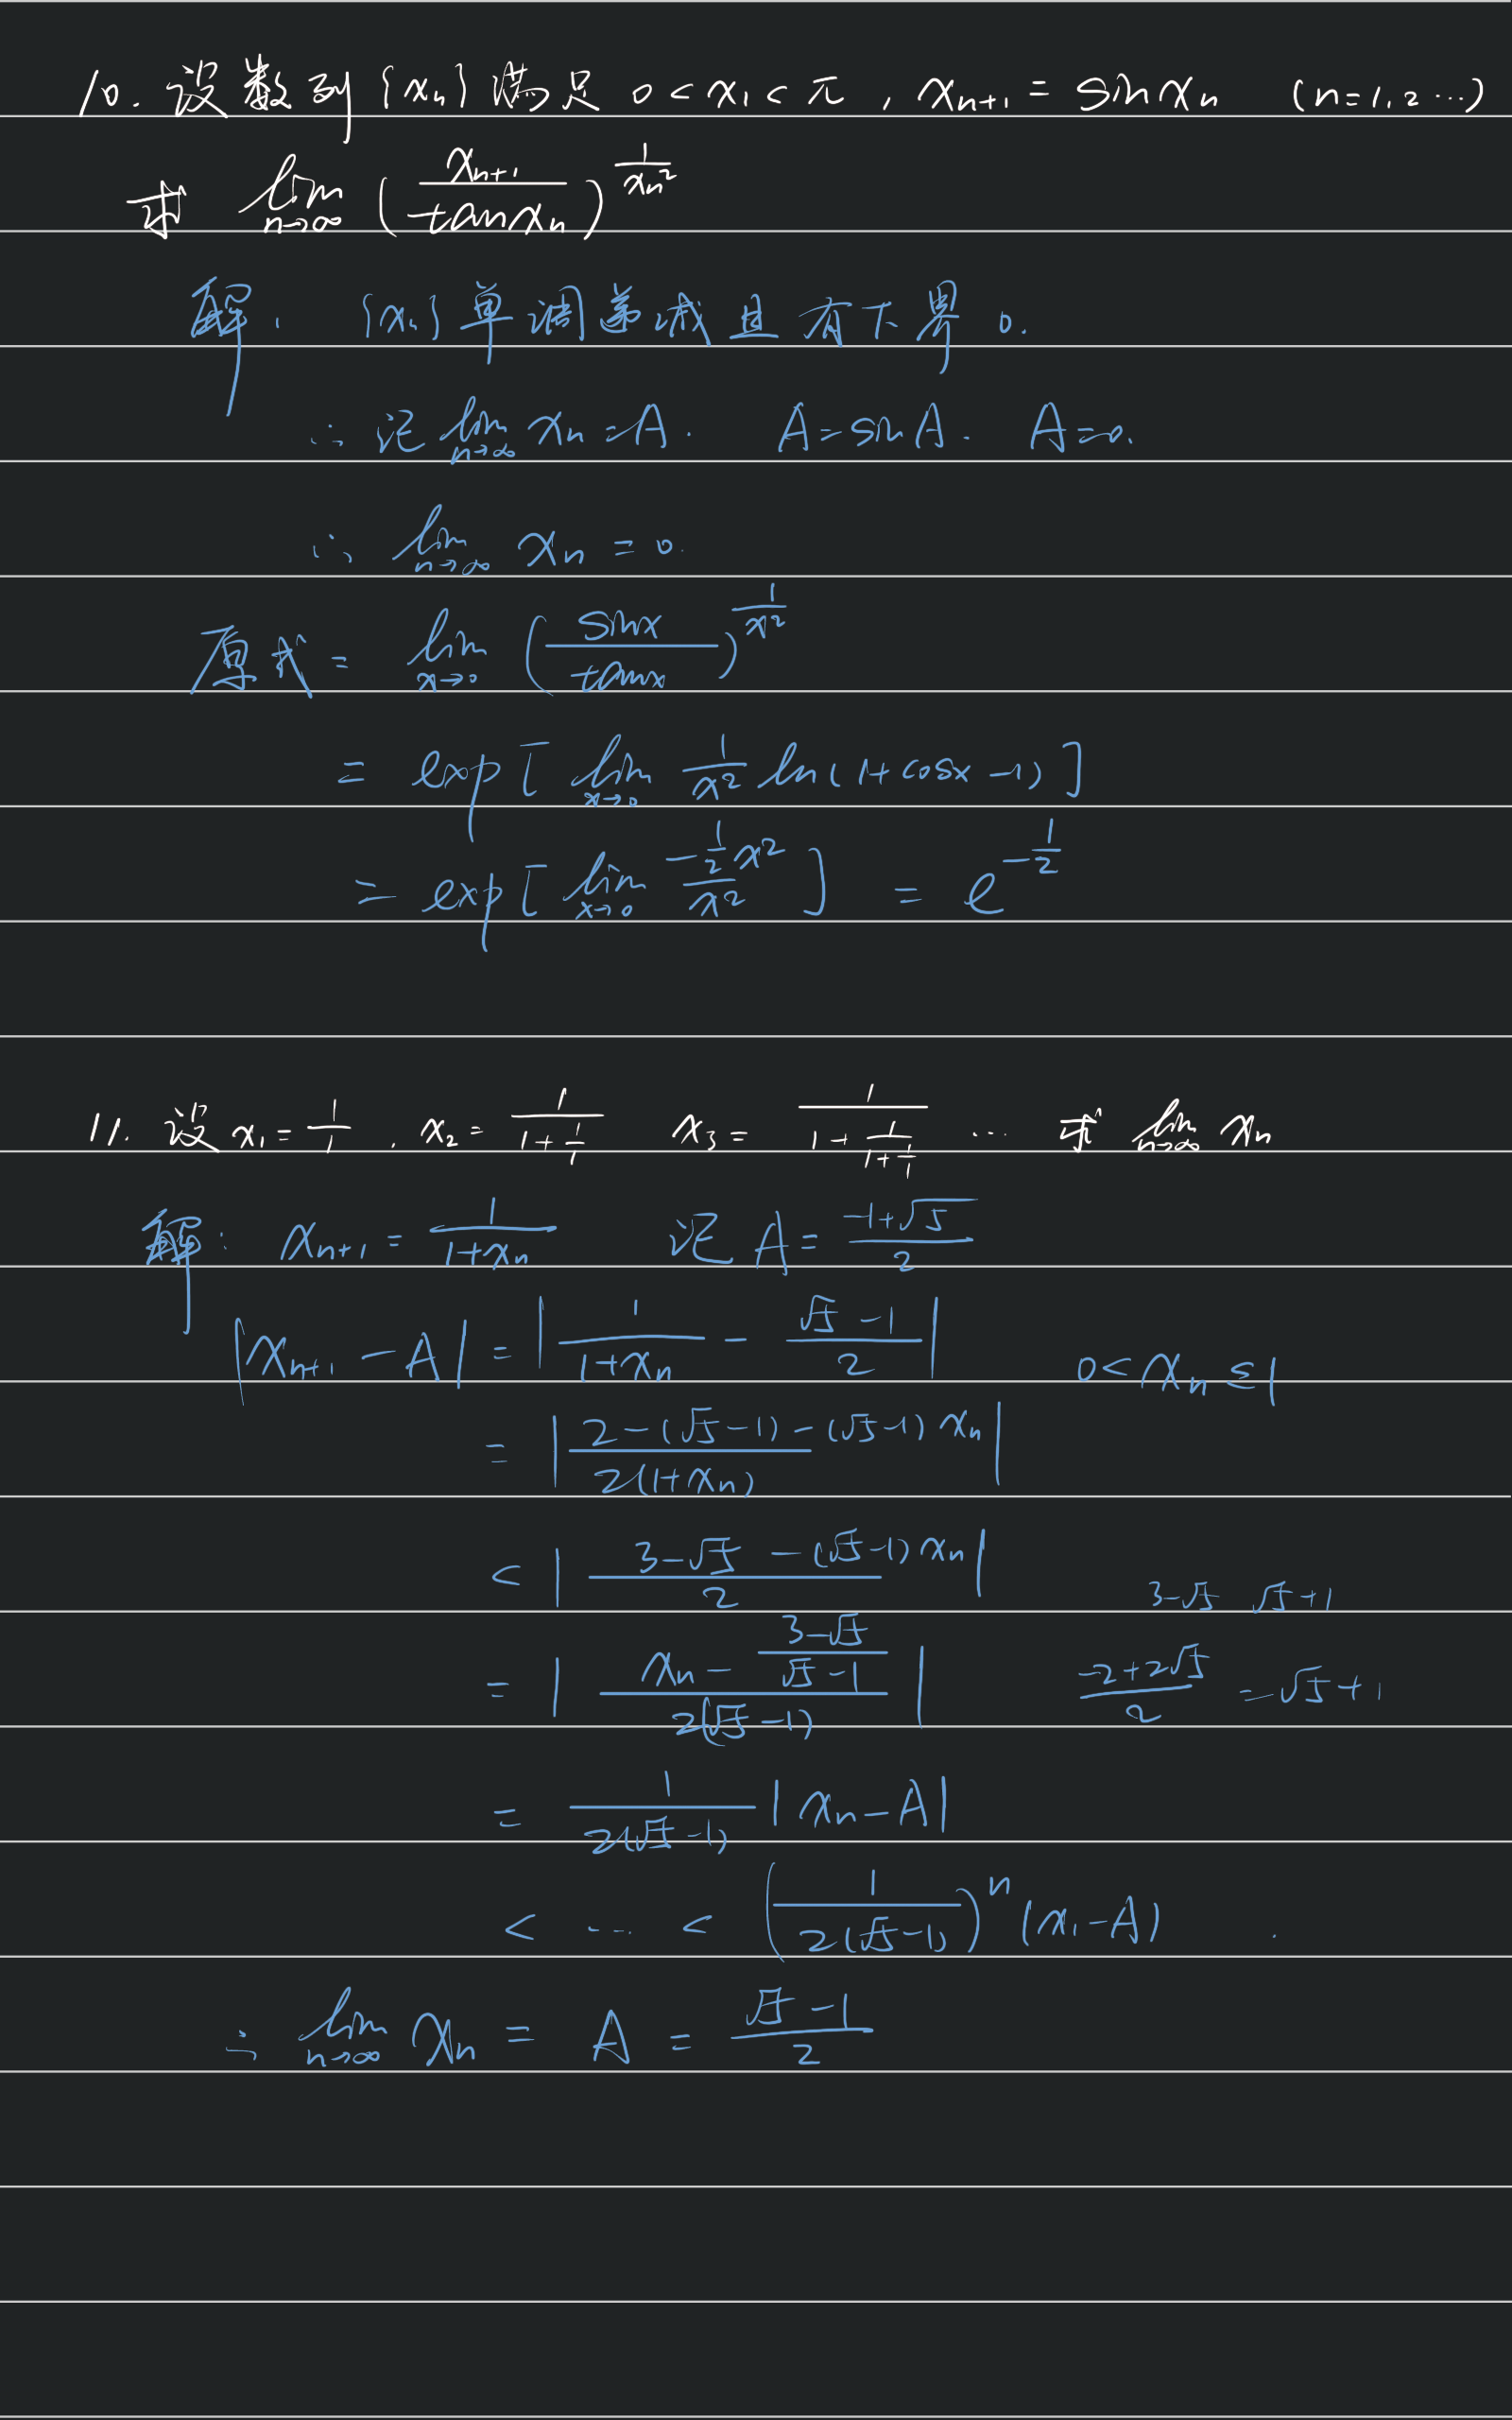 10. 设数列{xₙ}满足 0<x₁<π , xₙ₊₁ = sin xₙ (n=1,2…)
求 lim_{n→∞} (xₙ₊₁/tan xₙ)^{1/xₙ²}
解. {xₙ}单调递减且有下界 0.
∴ 记 lim_{n→∞} xₙ = A. A = sin A. A=0.
∴ lim_{n→∞} xₙ = 0.
原式 = lim_{x→0} (sin x/tan x)^{1/x²}
= exp[ lim_{x→0} 1/x² ln(1+cos x −1) ]
= exp[ lim_{x→0} (−½x²)/x² ] = e^{−1/2}
11. 设 x₁ = 1/1 . x₂ = 1/(1+1/1) x₃ = 1/(1+1/(1+1/1)) … 求 lim_{n→∞} xₙ
解: xₙ₊₁ = 1/(1+xₙ) 记 A = (−1+√5)/2
|xₙ₊₁ − A| = |1/(1+xₙ) − (√5−1)/2| 0<xₙ≤1
= |(2−(√5−1)−(√5−1)xₙ)/(2(1+xₙ))|
< |(3−√5 −(√5−1)xₙ)/2| 3−√5 √5+1
= |(xₙ − (3−√5)/(√5−1))/(2(√5−1))| (−2+2√5)/2 = √5+1
= 1/(2(√5−1)) |xₙ−A|
< … < (1/(2(√5−1)))ⁿ (x₁−A)
∴ lim_{n→∞} xₙ = A = (√5−1)/2